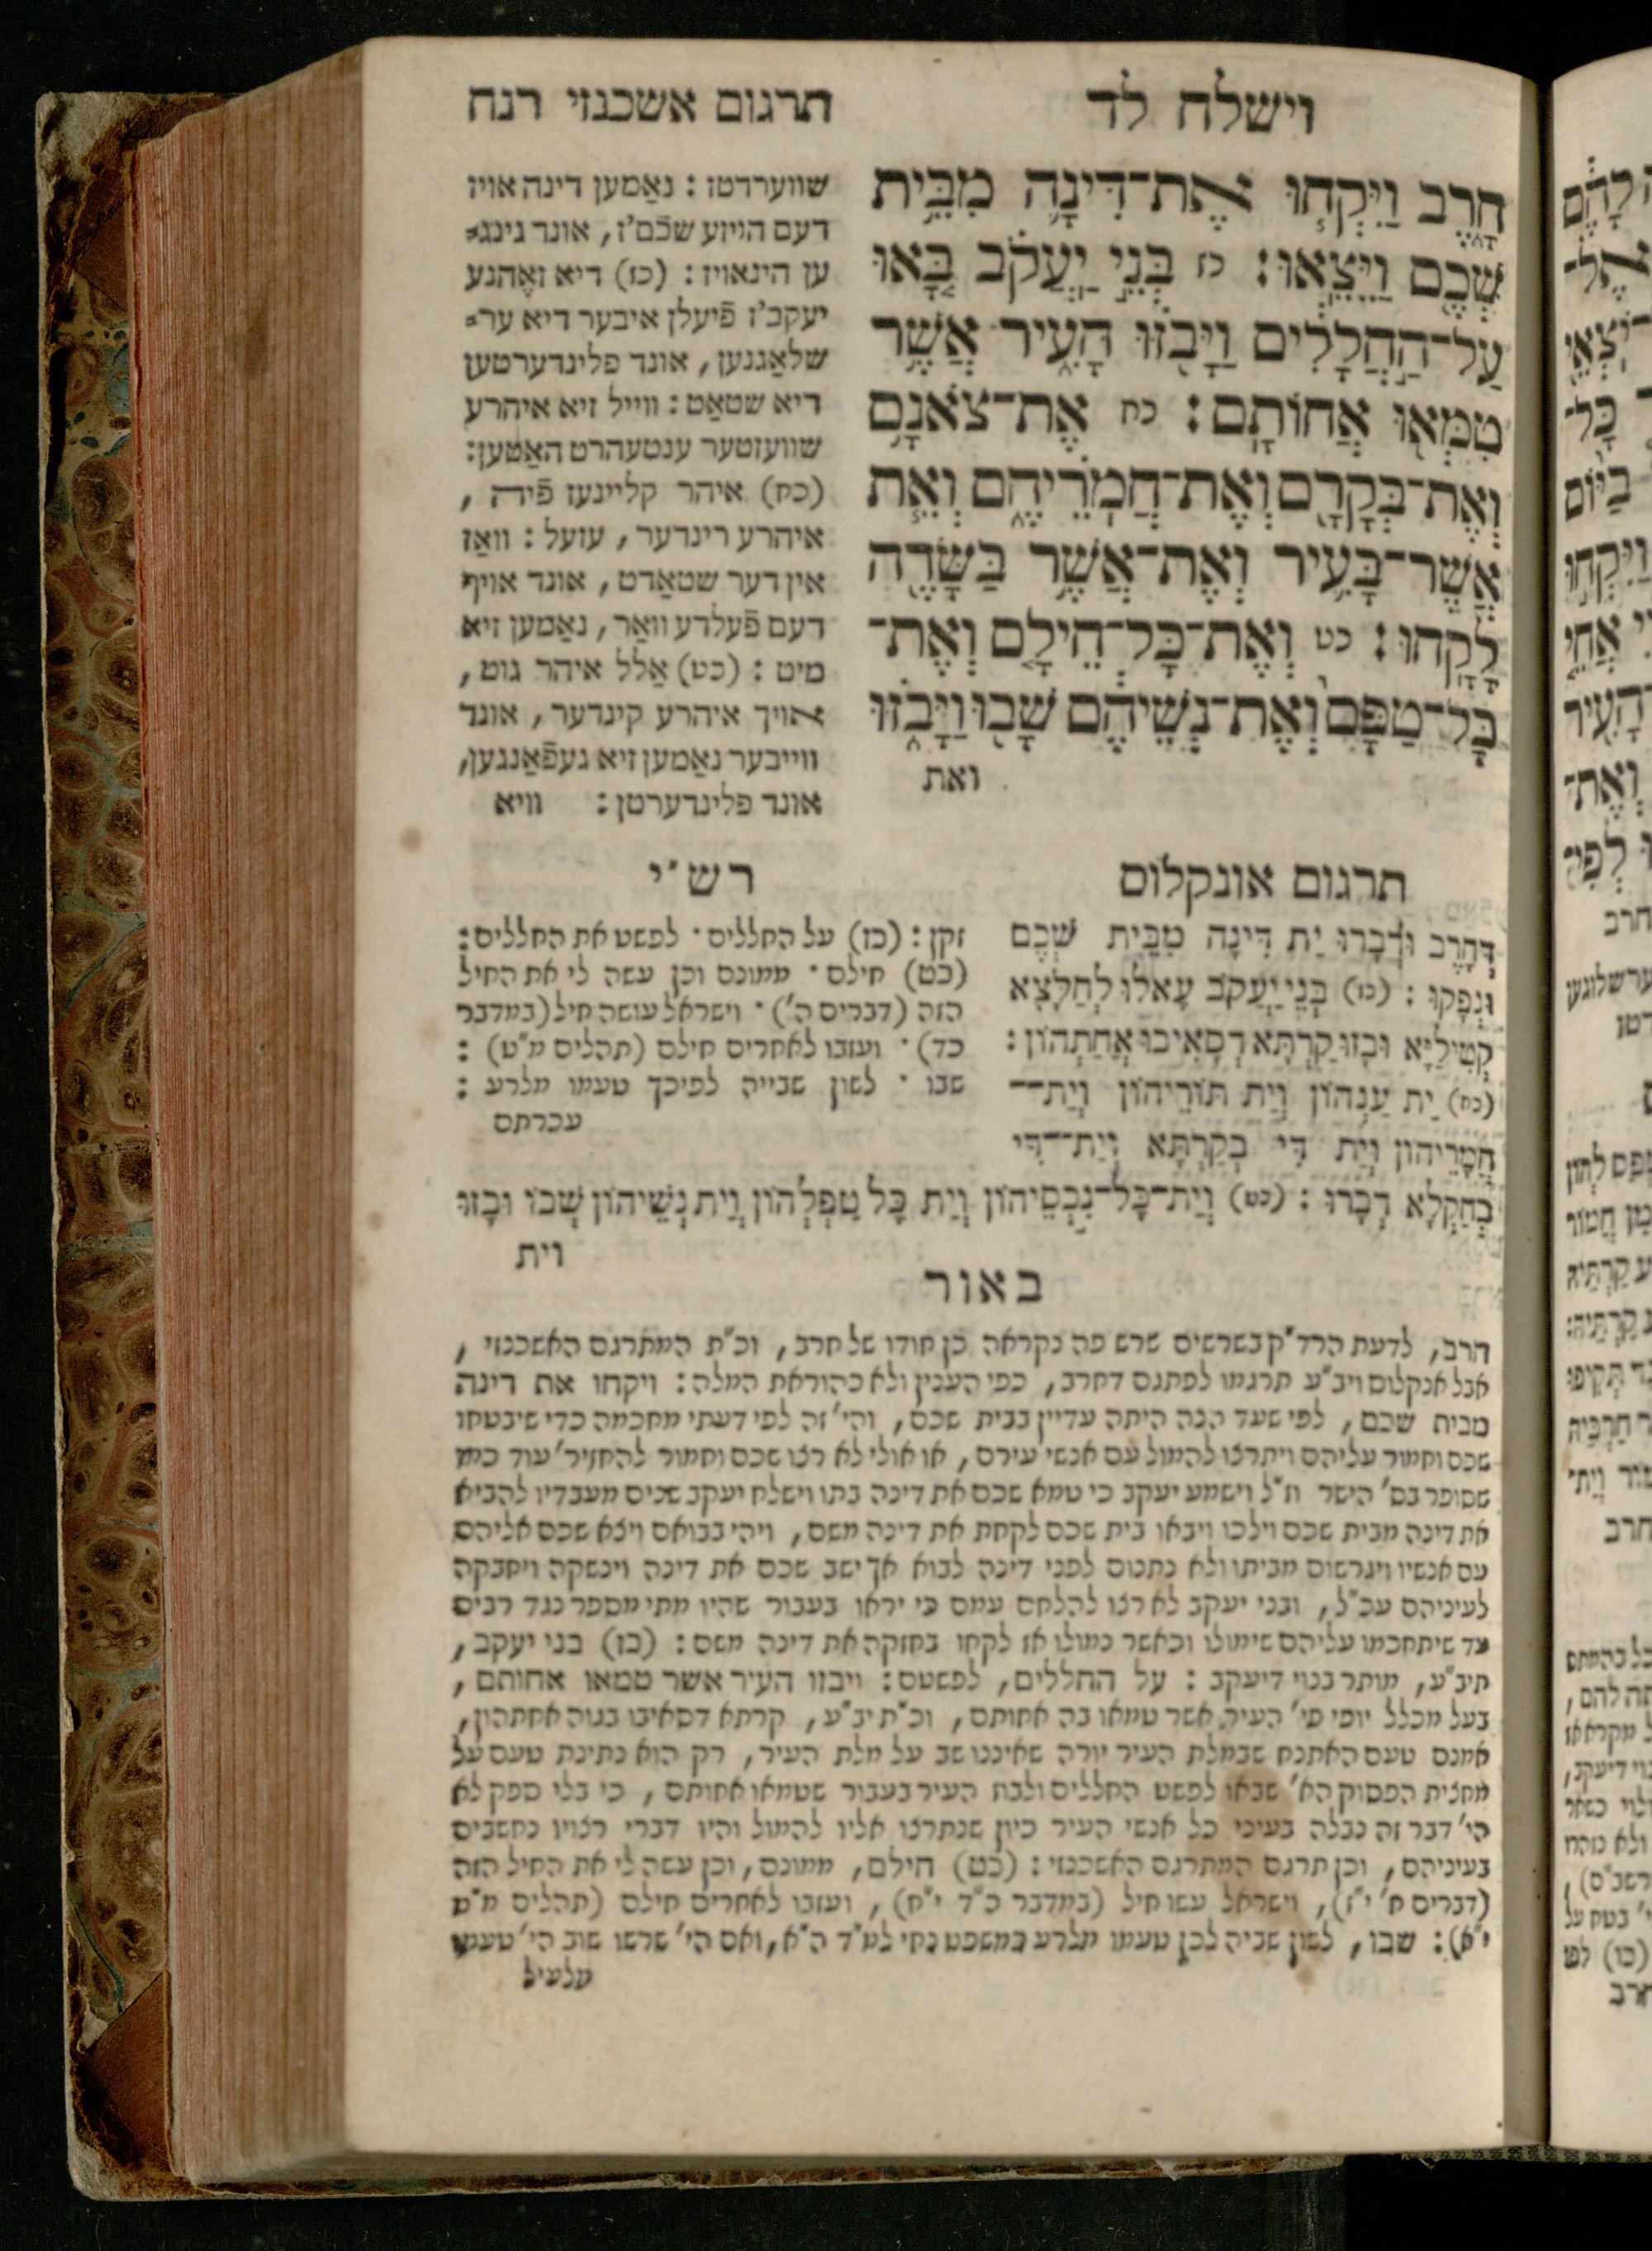 וישלח לד
תרגום אשכנזי רנח
חָרֶב וַיִּקְחוּ אֶת־דִּינָה מִבֵּית
שְׁכֶם וַיֵּצֵאוּ׃ כז בְּנֵי יַעֲקֹב בָּאוּ
עַל־הַחֲלָלִים וַיָּבֹזּוּ הָעִיר אֲשֶׁר
טִמְּאוּ אֲחוֹתָם׃ כח אֶת־צֹאנָם
וְאֶת־בְּקָרָם וְאֶת־חֲמֹרֵיהֶם וְאֵת
אֲשֶׁר־בָּעִיר וְאֶת־אֲשֶׁר בַּשָּׂדֶה
לָקָחוּ׃ כט וְאֶת־כָּל־חֵילָם וְאֶת־
כָּל־טַפָּם וְאֶת־נְשֵׁיהֶם שָׁבוּ וַיָּבֹזּוּ
ואת
שווערדטז : נאַמען דינה אויז
דעם הויזע שכֿם'ז, אונד גינג⸗
ען הינאויז : (כז) דיא זאֶהנע
יעקב'ז פֿיעלן איבער דיא ער⸗
שלאַגנען, אונד פלינדערטען
דיא שטאַט : ווייל זיא איהרע
שוועזטער ענטעהרט האַטען:
(כח) איהר קליינעז פֿיה ,
איהרע רינדער, עזעל : וואַז
אין דער שטאַדט, אונד אויף
דעם פֿעלדע וואַר, נאַמען זיא
מיט : (כט) אַלל איהר גוט ,
אויך איהרע קינדער, אונד
ווייבער נאַמען זיא געפֿאַנגען,
אונד פלינדערטן : וויא
תרגום אונקלוס
דְּחָרֶב וּדְבָרוּ יַת דִּינָה מִבֵּית שְׁכֶם
וּנְפָקוּ : (כז) בְּנֵי יַעֲקֹב עָאלוּ לְחַלָּצָא
קְטִילַיָּא וּבְזוּ קַרְתָּא דְסָאִיבוּ אֲחָתְהוֹן :
(כח) יַת עַנְהוֹן וְיַת תּוֹרֵיהוֹן וְיַת־
חֲמָרֵיהוֹן וְיַת דִּי בְקַרְתָּא וְיַת־דִּי
בְחַקְלָא דְבָרוּ : (כט) וְיַת־כָּל־נִכְסֵיהוֹן וְיַת כָּל טַפְלְהוֹן וְיַת נְשֵׁיהוֹן שְׁבוֹ וּבָזוּ
וית
רש"י
זקן : (כז) על החללים · לפשט את החללים :
(כט) חילם · ממונם וכן עשה לי את החיל
הזה (דברים ה') · וישראל עושה חיל (במדבר
כד) · ועזבו לאחרים חילם (תהלים מ"ט) :
שבו · לשון שבייה לפיכך טעמו מלרע :
עכרתם
באור
חרב, לדעת הרד"ק בשרשים שרש פה נקראה כן חודו של חרב, וכ"ת המתרגם האשכנזי ,
אבל אנקלוס ויב"ע תרגמו לפתגם דחרב, כפי הענין ולא כהוראת המלה : ויקחו את דינה
מבית שכם, לפי שעד הנה היתה עדיין בבית שכם, והי' זה לפי דעתי מחכמה כדי שיבטחו
שכם וחמור עליהם ויתרצו להמול עם אנשי עירם, או אולי לא רצו שכם וחמור להחזיר' עוד כמו
שסופר בס' הישר וז"ל וישמע יעקב כי טמא שכם את דינה בתו וישלח יעקב שנים מעבדיו להביא
את דינה מבית שכם וילכו ויבאו בית שכם לקחת את דינה משם, ויהי בבואם ויצא שכם אליהם
עם אנשיו ויגרשום מביתו ולא נתנום לפני דינה לבוא אך ישב שכם את דינה וינשקה ויחבקה
לעיניהם עכ"ל, ובני יעקב לא רצו להלחם עמם כי יראו בעבור שהיו מתי מספר נגד רבים
עד שיתחכמו עליהם שימולו וכאשר נמולו אז לקחו בחזקה את דינה משם : (כז) בני יעקב,
תיב"ע, מותר בנוי דיעקב : על החללים, לפשטם : ויבזו העיר אשר טמאו אחותם ,
בעל מכלל יופי פי' העיר אשר טמאו בה אחותם, וכ"ת יב"ע, קרתא דסאיבו בגוה אחתהין,
אמנם טעם האתנח שבמלת העיר יורה שאיננו שב על מלת העיר, רק הוא נתינת טעם על
מחצית הפסוק הא' שבאו לפשט החללים ולבוז העיר בעבור שטמאו אחותם , כי בלי ספק לא
הי' דבר זה נבלה בעיני כל אנשי העיר כיון שנתרצו אליו להמול והיו דברי רצויו נחשבים
בעיניהם, וכן תרגם המתרגם האשכנזי : (כט) חילם, ממונם, וכן עשה לי את החיל הזה
(דברים ח' י"ז), וישראל עשו חיל (במדבר כ"ד י"ח), ועזבו לאחרים חילם (תהלים מ"ט
י"א) : שבו, לשון שביה לכן טעמו מלרע במשפט נחי למ"ד ה"א, ואם הי' שרשו שוב הי' טעמו
מלעיל